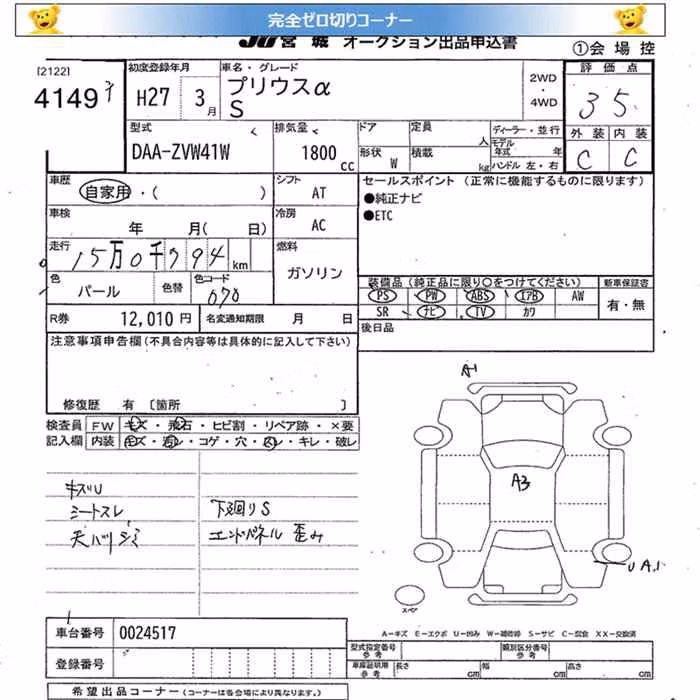 完全ゼロ切りコーナー
JU 宮城 オークション出品申込書
①会場控
[2122]
4149
初度登録年月
H27 3月
車名・グレード
プリウスα
S
2WD
・
4WD
評価点
3 5
外装 内装
C C
型式
DAA-ZVW41W
排気量
1800 cc
ドア 定員 人
形状 W 積載 kg
ディーラー・並行
モデル年式 年
ハンドル 左・右
車歴
自家用・( )
シフト
AT
セールスポイント (正常に機能するものに限ります)
●純正ナビ
●ETC
車検
年 月( 日)
冷房
AC
走行
15万0千794 km
燃料
ガソリン
色
パール
色替
色コード
070
装備品(純正品に限り○をつけてください)
新車保証書
PS PW ABS エアB AW
SR ナビ TV カワ
有・無
R券 12,010 円
名変通知期限 月 日
後日品
注意事項申告欄(不具合内容等は具体的に記入して下さい)
修復歴 有 〔箇所 〕
検査員 FW キズ・飛石・ヒビ割・リペア跡・×要
記入欄 内装 キズ・汚レ・コゲ・穴・スレ・キレ・破レ
キズU
シートスレ
天バリシミ
下廻りS
エンドパネル 歪み
A1
A3
U A1
スペア
A－キズ E－エクボ U－凹み W－補修跡 S－サビ C－腐食 XX－交換済
車台番号 0024517
登録番号
型式指定番号 参考
類別区分番号 参考
車庫証明用 参考
長さ cm 幅 cm 高さ cm
希望出品コーナー(コーナーは各会場により異なります。)